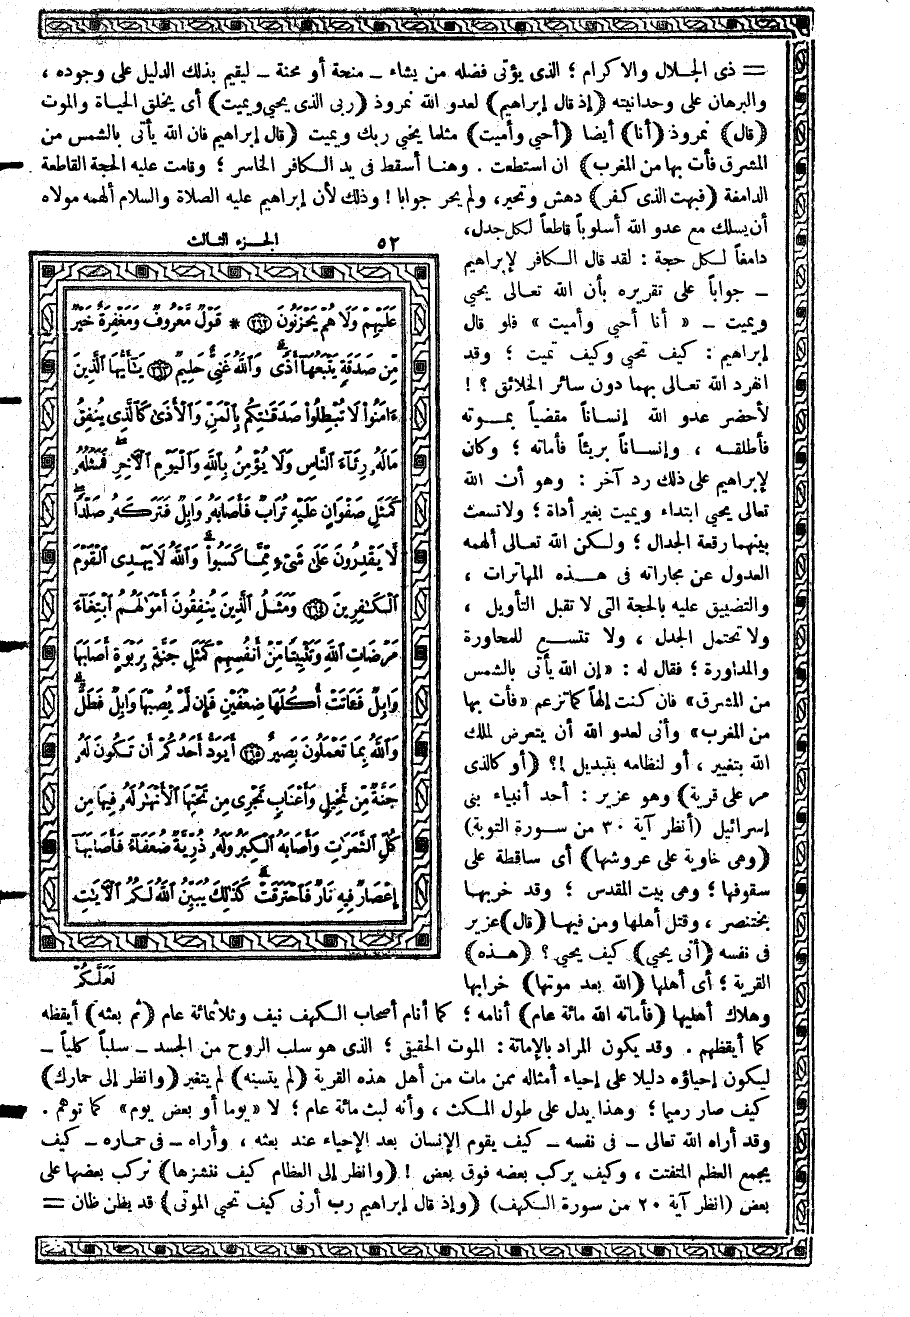 = ذى الجلال والاكرام ؛ الذى يؤتى فضله من يشاء ــ منحة أو محنة ــ ليقيم بذلك الدليل على وجوده ،
والبرهان على وحدانيته (إذ قال إبراهيم) لعدو الله نمروذ (ربى الذى يحيي ويميت) أى يخلق الحياة والموت
(قال) نمروذ (أنا) أيضا (أحي وأميت) مثلما يحيي ربك ويميت (قال إبراهيم فان الله يأتى بالشمس من
المشرق فأت بها من المغرب) ان استطعت . وهنا أسقط فى يد الكافر الخاسر ؛ وقامت عليه الحجة القاطعة
الدامغة (فبهت الذى كفر) دهش وتحير، ولم يحر جوابا ! وذلك لأن إبراهيم عليه الصلاة والسلام ألهمه مولاه
أن يسلك مع عدو الله أسلوباً قاطعاً لكل جدل،
دامغاً لكل حجة : لقد قال الكافر لإبراهيم
ــ جواباً على تقريره بأن الله تعالى يحيي
ويميت ــ « أنا أحيي وأميت » فلو قال
إبراهيم : كيف تحيي وكيف تميت ؛ وقد
انفرد الله تعالى بهما دون سائر الخلائق ؟ !
لأحضر عدو الله إنساناً مقضياً بموته
فأطلقه ، وإنساناً بريئاً فأماته ؛ وكان
لإبراهيم على ذلك رد آخر : وهو أن الله
تعالى يحيي ابتداء ويميت بغير أداة ؛ ولاتسعت
بينهما رقعة الجدال ؛ ولكن الله تعالى ألهمه
العدول عن مجاراته فى هذه المهاترات ،
والتضييق عليه بالحجة التى لا تقبل التأويل ،
ولا تحتمل الجدل ، ولا تتسع للمحاورة
والمداورة ؛ فقال له : «إن الله يأتى بالشمس
من المشرق» فان كنت إلهاً كما تزعم «فأت بها
من المغرب» وأنى لعدو الله أن يتعرض لملك
الله بتغيير ، أو لنظامه بتبديل !؟ (أو كالذى
مر على قرية) وهو عزير : أحد أنبياء بنى
إسرائيل (أنظر آية ٣٠ من سورة التوبة)
(وهى خاوية على عروشها) أى ساقطة على
سقوفها ؛ وهى بيت المقدس ؛ وقد خربها
بختنصر ، وقتل أهلها ومن فيها (قال) عزير
فى نفسه (أنى يحيي) كيف يحيي ؟ (هذه)
القرية ؛ أى أهلها (الله بعد موتها) خرابها
الجزء الثالث ٥٢
عَلَيْهِمْ وَلَا هُمْ يَحْزَنُونَ ﴿٢٦٢﴾ * قَوْلٌ مَّعْرُوفٌ وَمَغْفِرَةٌ خَيْرٌ
مِّن صَدَقَةٍ يَتْبَعُهَآ أَذًى وَاللَّهُ غَنِىٌّ حَلِيمٌ ﴿٢٦٣﴾ يَـٰٓأَيُّهَا الَّذِينَ
ءَامَنُوا۟ لَا تُبْطِلُوا۟ صَدَقَـٰتِكُم بِالْمَنِّ وَالْأَذَىٰ كَالَّذِى يُنفِقُ
مَالَهُۥ رِئَآءَ النَّاسِ وَلَا يُؤْمِنُ بِاللَّهِ وَالْيَوْمِ الْـَٔاخِرِ فَمَثَلُهُۥ
كَمَثَلِ صَفْوَانٍ عَلَيْهِ تُرَابٌ فَأَصَابَهُۥ وَابِلٌ فَتَرَكَهُۥ صَلْدًا
لَّا يَقْدِرُونَ عَلَىٰ شَىْءٍ مِّمَّا كَسَبُوا۟ وَاللَّهُ لَا يَهْدِى الْقَوْمَ
الْكَـٰفِرِينَ ﴿٢٦٤﴾ وَمَثَلُ الَّذِينَ يُنفِقُونَ أَمْوَٰلَهُمُ ابْتِغَآءَ
مَرْضَاتِ اللَّهِ وَتَثْبِيتًا مِّنْ أَنفُسِهِمْ كَمَثَلِ جَنَّةٍۭ بِرَبْوَةٍ أَصَابَهَا
وَابِلٌ فَـَٔاتَتْ أُكُلَهَا ضِعْفَيْنِ فَإِن لَّمْ يُصِبْهَا وَابِلٌ فَطَلٌّ
وَاللَّهُ بِمَا تَعْمَلُونَ بَصِيرٌ ﴿٢٦٥﴾ أَيَوَدُّ أَحَدُكُمْ أَن تَكُونَ لَهُۥ
جَنَّةٌ مِّن نَّخِيلٍ وَأَعْنَابٍ تَجْرِى مِن تَحْتِهَا الْأَنْهَـٰرُ لَهُۥ فِيهَا مِن
كُلِّ الثَّمَرَٰتِ وَأَصَابَهُ الْكِبَرُ وَلَهُۥ ذُرِّيَّةٌ ضُعَفَآءُ فَأَصَابَهَآ
إِعْصَارٌ فِيهِ نَارٌ فَاحْتَرَقَتْ كَذَٰلِكَ يُبَيِّنُ اللَّهُ لَكُمُ الْـَٔايَـٰتِ
لَعَلَّكُمْ
وهلاك أهليها (فأماته الله مائة عام) أنامه ؛ كما أنام أصحاب الكهف نيف وثلاثمائة عام (ثم بعثه) أيقظه
كما أيقظهم . وقد يكون المراد بالإماتة : الموت الحقيقى ؛ الذى هو سلب الروح من الجسد ــ سلباً كلياً ــ
ليكون إحياؤه دليلا على إحياء أمثاله ممن مات من أهل هذه القرية (لم يتسنه) لم يتغير (وانظر إلى حمارك)
كيف صار رميما ؛ وهذا يدل على طول المكث ، وأنه لبث مائة عام ؛ لا «يوما أو بعض يوم» كما توهم .
وقد أراه الله تعالى ــ فى نفسه ــ كيف يقوم الإنسان بعد الإحياء عند بعثه ، وأراه ــ فى حماره ــ كيف
يجمع العظم المتفتت ، وكيف يركب بعضه فوق بعض ! (وانظر إلى العظام كيف ننشزها) نركب بعضها على
بعض (انظر آية ٢٠ من سورة الكهف) (وإذ قال إبراهيم رب أرنى كيف تحيي الموتى) قد يظن ظان =